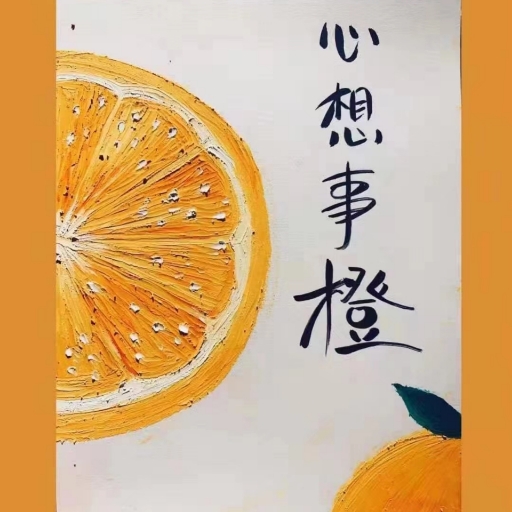 心想事橙